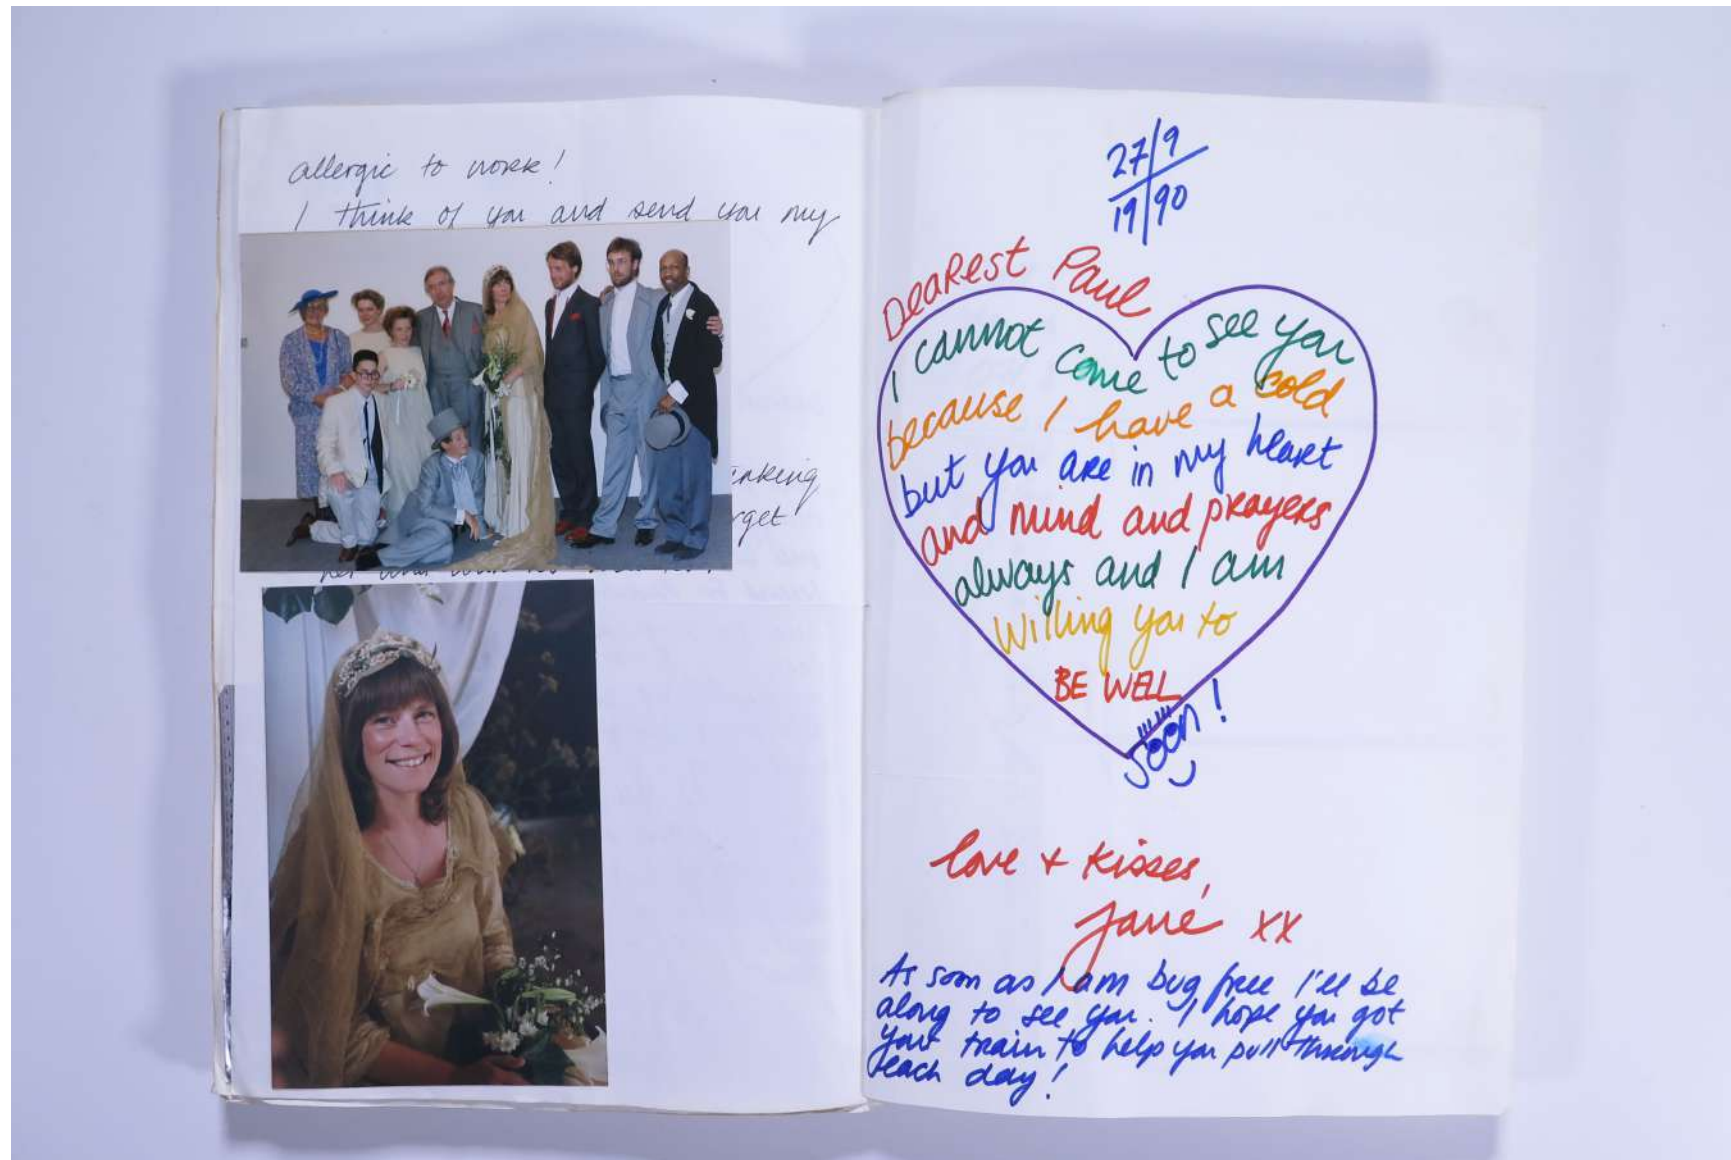 allergic to work!
I think of you and send you my
27/9
19/90
Dearest Paul
I cannot come to see you
because I have a cold
but you are in my heart
and mind and prayers
always and I am
willing you to
BE WELL
soon!
love + kisses,
Jane xx
As soon as I am bug free I'll be
along to see you. I hope you got
your train to help you pull through
each day!